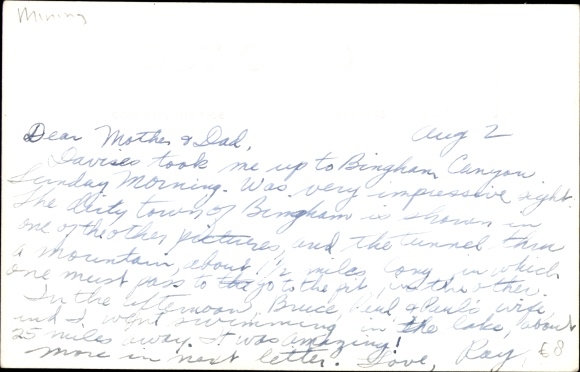 Mining
Dear Mother & Dad, Aug 2
Davises took me up to Bingham Canyon
Sunday Morning. Was very impressive sight.
The dirty town of Bingham is shown in
one of the other pictures, and the tunnel thru
a mountain, about 1½ miles long, in which
one must pass to the go to the pit, in the other.
In the afternoon, Bruce, Paul & Paul's wife
and I went swimming in the lake, about
25 miles away. It was amazing!
More in next letter. Love, Ray
£8